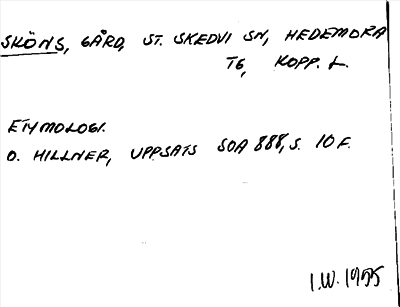 SKÖNS, GÅRD, ST. SKEDVI SN, HEDEMORA
TG, KOPP. L.
ETYMOLOGI.
O. HILLNER, UPPSATS SOA 888, S. 10 F.
I.W. 1955